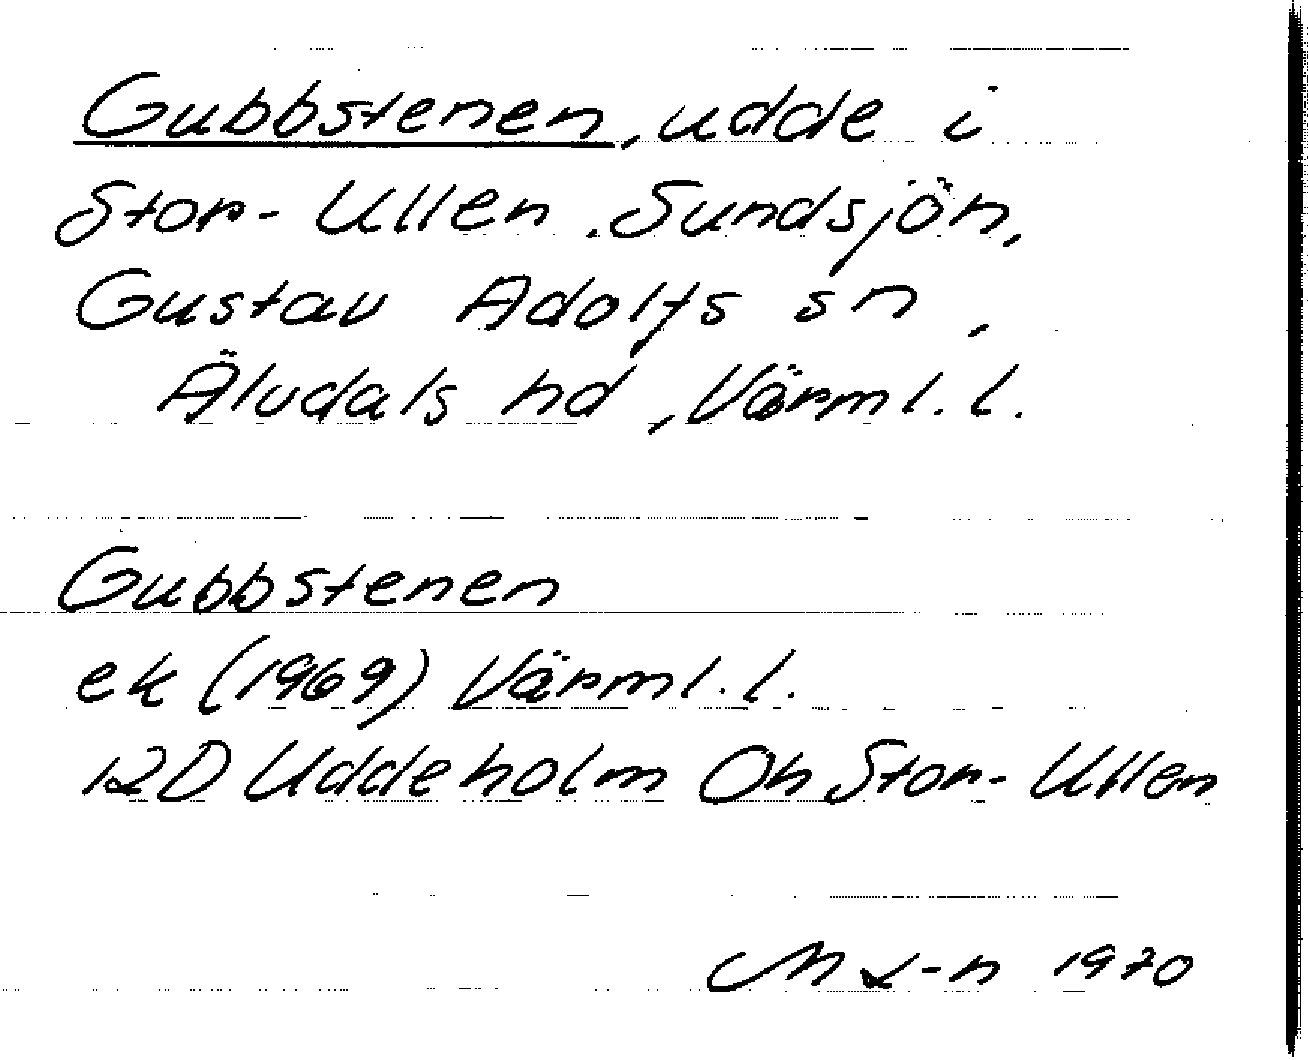 Gubbstenen, udde i
Stor-Ullen, Sundsjön,
Gustav Adolfs sn,
Älvdals hd, Värml. l.
Gubbstenen
ek (1969) Värml. l.
12D Uddeholm Oh Stor-Ullen
1970